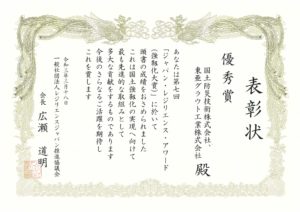 表彰状
優秀賞
国土防災技術株式会社
東亜グラウト工業株式会社 殿
あなたは第七回
「ジャパン・レジリエンス・アワード
（強靱化大賞）」に於いて
頭書の成績をおさめられました
これは国土強靱化の実現へ向けて
最も先進的な取組みとして
多大な貢献をするものであります
今後のさらなるご活躍を期待し
これを賞します
一般社団法人レジリエンスジャパン推進協議会
会長 広瀬 道明